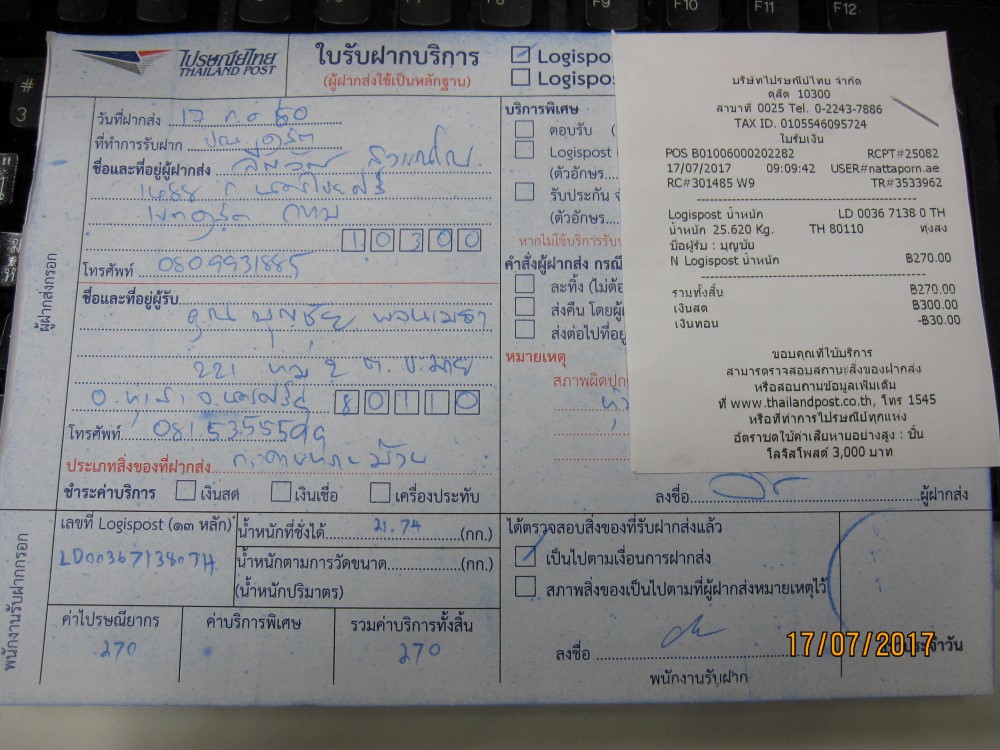 ไปรษณีย์ไทย
THAILAND POST
ใบรับฝากบริการ
(ผู้ฝากส่งใช้เป็นหลักฐาน)
Logispo
Logispo
วันที่ฝากส่ง 17 ก.ค 60
ที่ทำการรับฝาก
ชื่อและที่อยู่ผู้ฝากส่ง
เขตดุสิต กทม
10300
โทรศัพท์ 0809931885
ชื่อและที่อยู่ผู้รับ
คุณ บุญชัย
221 หมู่ 2 ต.
80110
โทรศัพท์ 0815355599
ประเภทสิ่งของที่ฝากส่ง
ชำระค่าบริการ เงินสด เงินเชื่อ เครื่องประทับ
ผู้ฝากส่งกรอก
บริการพิเศษ
ตอบรับ (
Logispost
(ตัวอักษร....
รับประกัน
(ตัวอักษร....
หากไม่ใช้บริการรับ
คำสั่งผู้ฝากส่ง กรณี
ละทิ้ง (ไม่ต้อ
ส่งคืน โดยผู้
ส่งต่อไปที่อยู่
หมายเหตุ
สภาพผิดปก
ลงชื่อ ผู้ฝากส่ง
บริษัทไปรษณีย์ไทย จำกัด
ดุสิต 10300
สาขาที่ 0025 Tel. 0-2243-7886
TAX ID. 0105546095724
ใบรับเงิน
POS B01006000202282 RCPT#25082
17/07/2017 09:09:42 USER#nattaporn.ae
RC#301485 W9 TR#3533962
Logispost น้ำหนัก LD 0036 7138 0 TH
น้ำหนัก 25.620 Kg. TH 80110 ทุ่งสง
ชื่อผู้รับ : บุญชัย
N Logispost น้ำหนัก ฿270.00
รวมทั้งสิ้น ฿270.00
เงินสด ฿300.00
เงินทอน -฿30.00
ขอบคุณที่ใช้บริการ
สามารถตรวจสอบสถานะสิ่งของฝากส่ง
หรือสอบถามข้อมูลเพิ่มเติม
ที่ www.thailandpost.co.th, โทร 1545
หรือที่ทำการไปรษณีย์ทุกแห่ง
อัตราชดใช้ค่าเสียหายอย่างสูง : ชิ้น
โลจิสโพสต์ 3,000 บาท
พนักงานรับฝากกรอก
เลขที่ Logispost (๑๓ หลัก)
LD003671380TH
น้ำหนักที่ชั่งได้ 21.74 (กก.)
น้ำหนักตามการวัดขนาด (กก.)
(น้ำหนักปริมาตร)
ค่าไปรษณียากร
270
ค่าบริการพิเศษ
รวมค่าบริการทั้งสิ้น
270
ได้ตรวจสอบสิ่งของที่รับฝากส่งแล้ว
เป็นไปตามเงื่อนการฝากส่ง
สภาพสิ่งของเป็นไปตามที่ผู้ฝากส่งหมายเหตุไว้
ลงชื่อ
พนักงานรับฝาก
17/07/2017
ประจำวัน
# 3
F9
F10
F11
F12